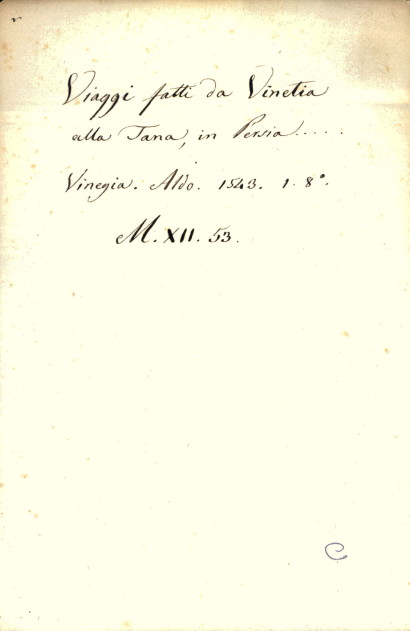 Viaggi fatti da Vinetia
alla Tana, in Persia.....
Vinegia. Aldo. 1543. 1. 8°.
M. XII. 53.
C